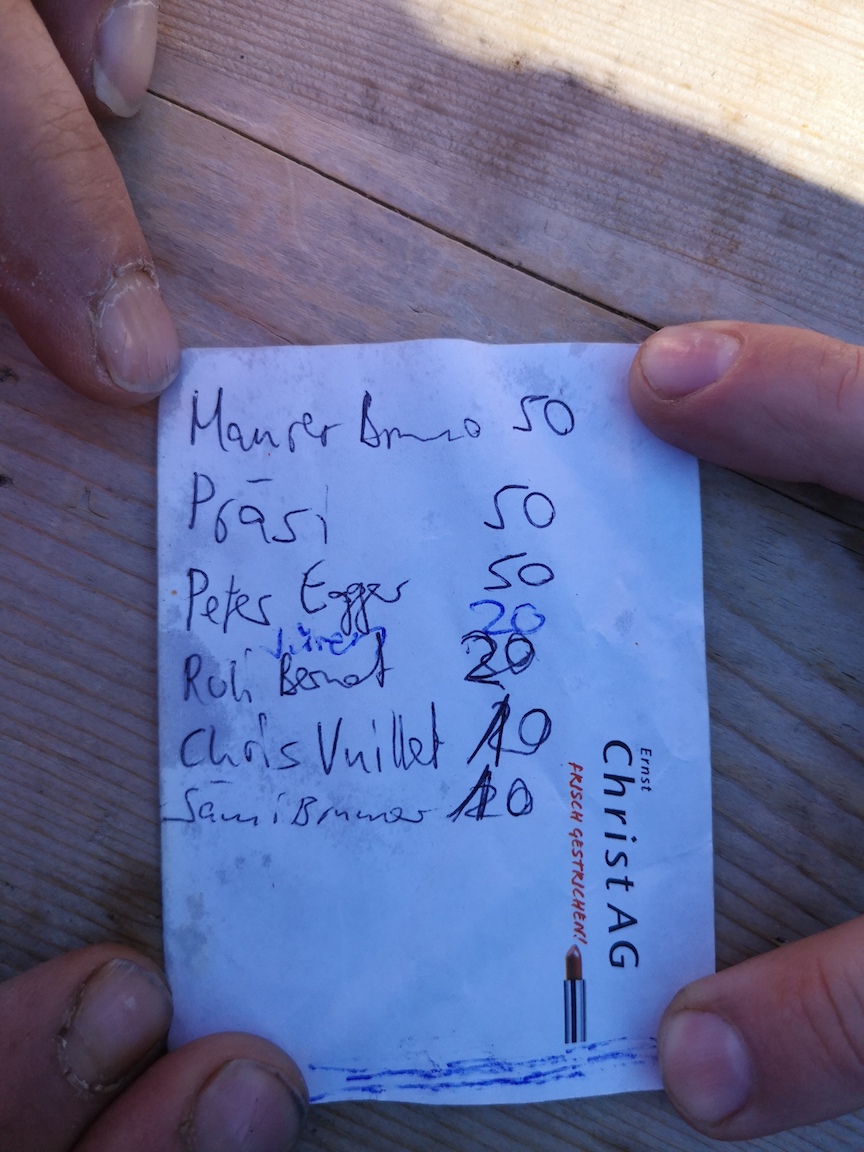 Maurer Bruno 50
Präsi 50
Peter Egger 50
Jürg 20
Ruli Bernat 20
Chris Vuillet 10
Sämi Brunner 10
Ernst
Christ AG
FRISCH GESTRICHEN!